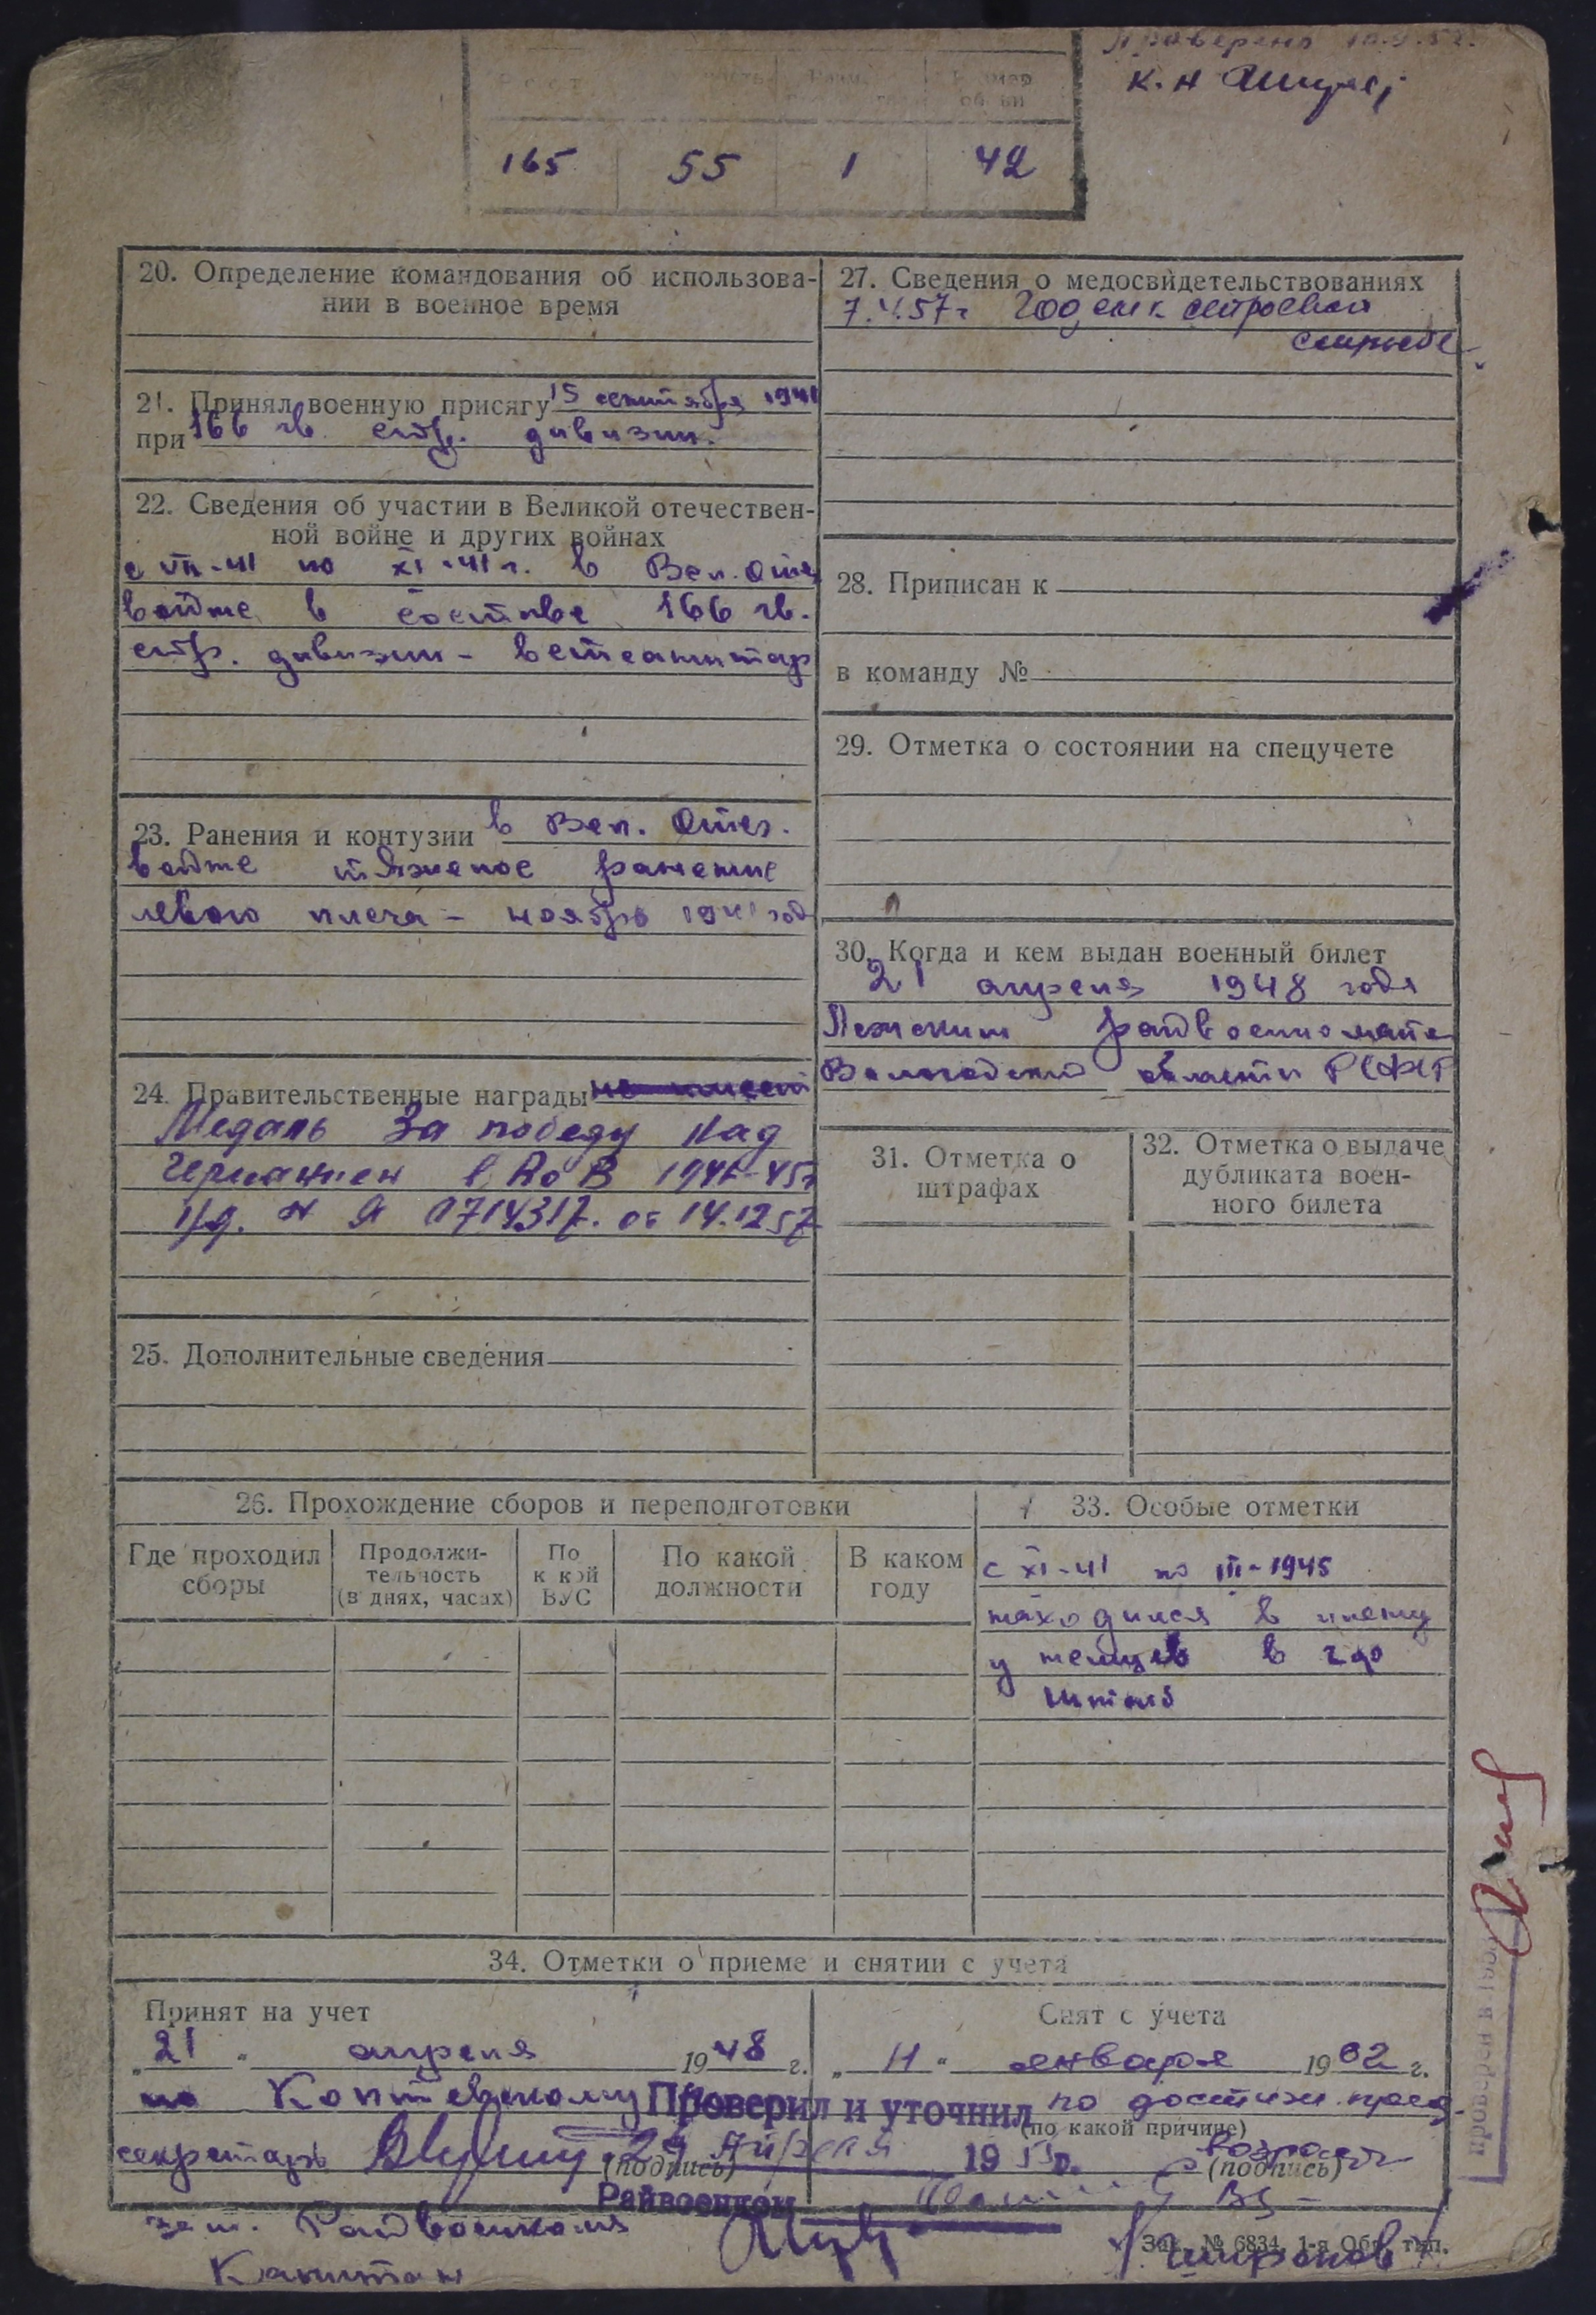 Проверено
К. Н
165 55 1 42
20. Определение командования об использова-
нии в военное время
21. Принял военную присягу 15 сентября 1941
при 166 гв. стр. дивизии.
22. Сведения об участии в Великой отечествен-
ной войне и других войнах
с VII-41 по XI-41 г. в Вел. Отеч
войне в составе 166 гв.
стр. дивизии - ветсанитар
23. Ранения и контузии в Вел. Отеч.
войне тяжелое ранение
левого плеча - ноябрь 1941 год
24. Правительственные награды не имеет
Медаль За победу над
Германией в ВоВ 1941-45г
Уд. № Я 0714317. от 14.12.57
25. Дополнительные сведения
27. Сведения о медосвидетельствованиях
7.V.57г Годен к строевой
службе
28. Приписан к
в команду №
29. Отметка о состоянии на спецучете
30. Когда и кем выдан военный билет
21 апреля 1948 года
Лежским райвоенкомате
Вологодской области РСФСР
31. Отметка о
штрафах
32. Отметка о выдаче
дубликата воен-
ного билета
26. Прохождение сборов и переподготовки
Где проходил
сборы
Продолжи-
тельность
(в днях, часах)
По
к кой
ВУС
По какой
должности
В каком
году
33. Особые отметки
с XI-41 по III-1945
находился в плену
у немцев в гор
34. Отметки о приеме и снятии с учета
Принят на учет
„21" апреля 1948 г.
по Коптевскому
секретарь
(подпись)
Снят с учета
„11" января 1962 г.
по достиж. пред.
(по какой причине)
возраста
(подпись)
Проверил и уточнил
29 Апреля 19
Райвоенком
зам. Райвоенкома
Капитан
Зак. № 6834, 1-я Обр. тип.
проверен в